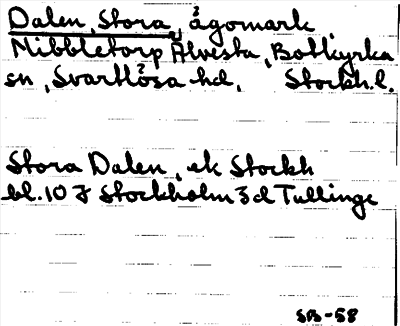 Dalen, Stora, ägomark
Nibbletorp Älvesta, Botkyrka
sn, Svartlösa hd, Stockh.l.
Stora Dalen, ek Stockh
bl. 10 J Stockholm 3d Tullinge
SB-58